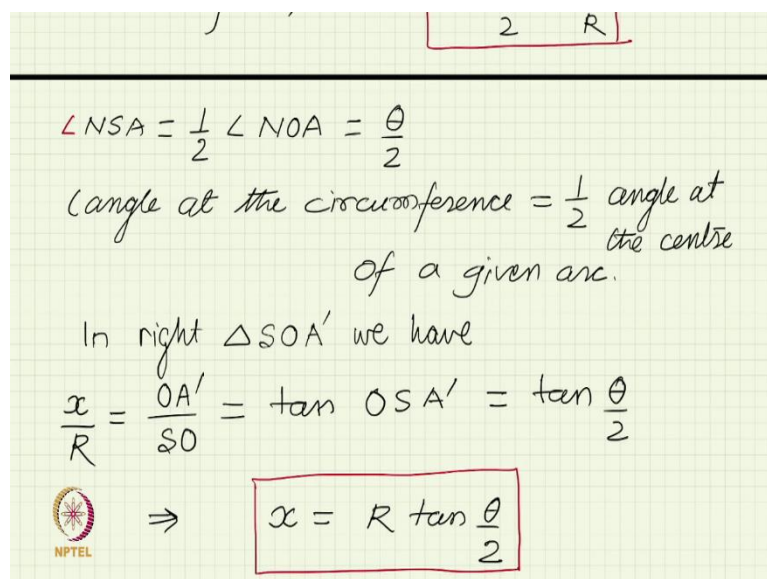 2 R
∠NSA = 1/2 ∠ NOA = θ/2
(angle at the circumference = 1/2 angle at
the centre
of a given arc.
In right △SOA' we have
x/R = OA'/SO = tan OSA' = tan θ/2
⇒ x = R tan θ/2
NPTEL